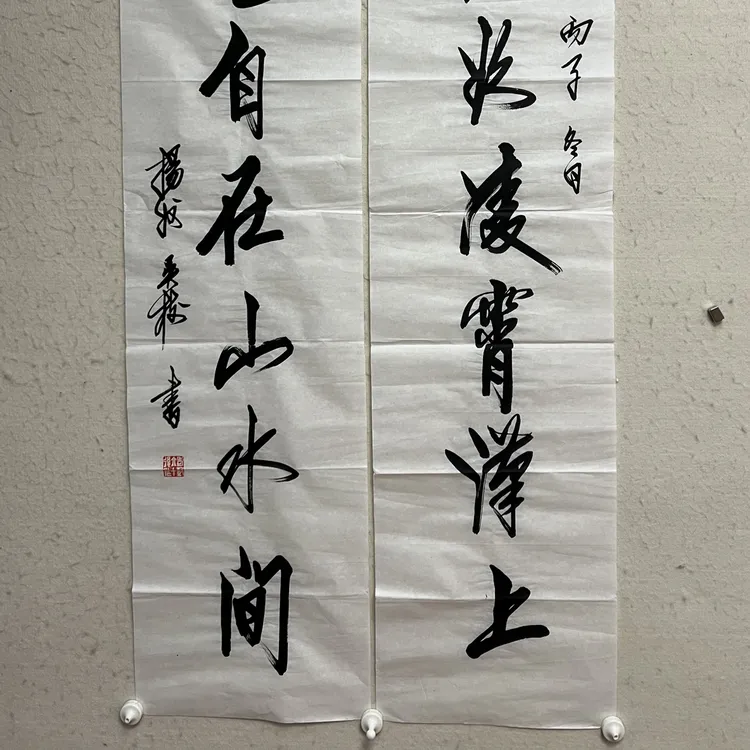 丙子冬月
凌霄漢上
自在山水間
揚州吴 書